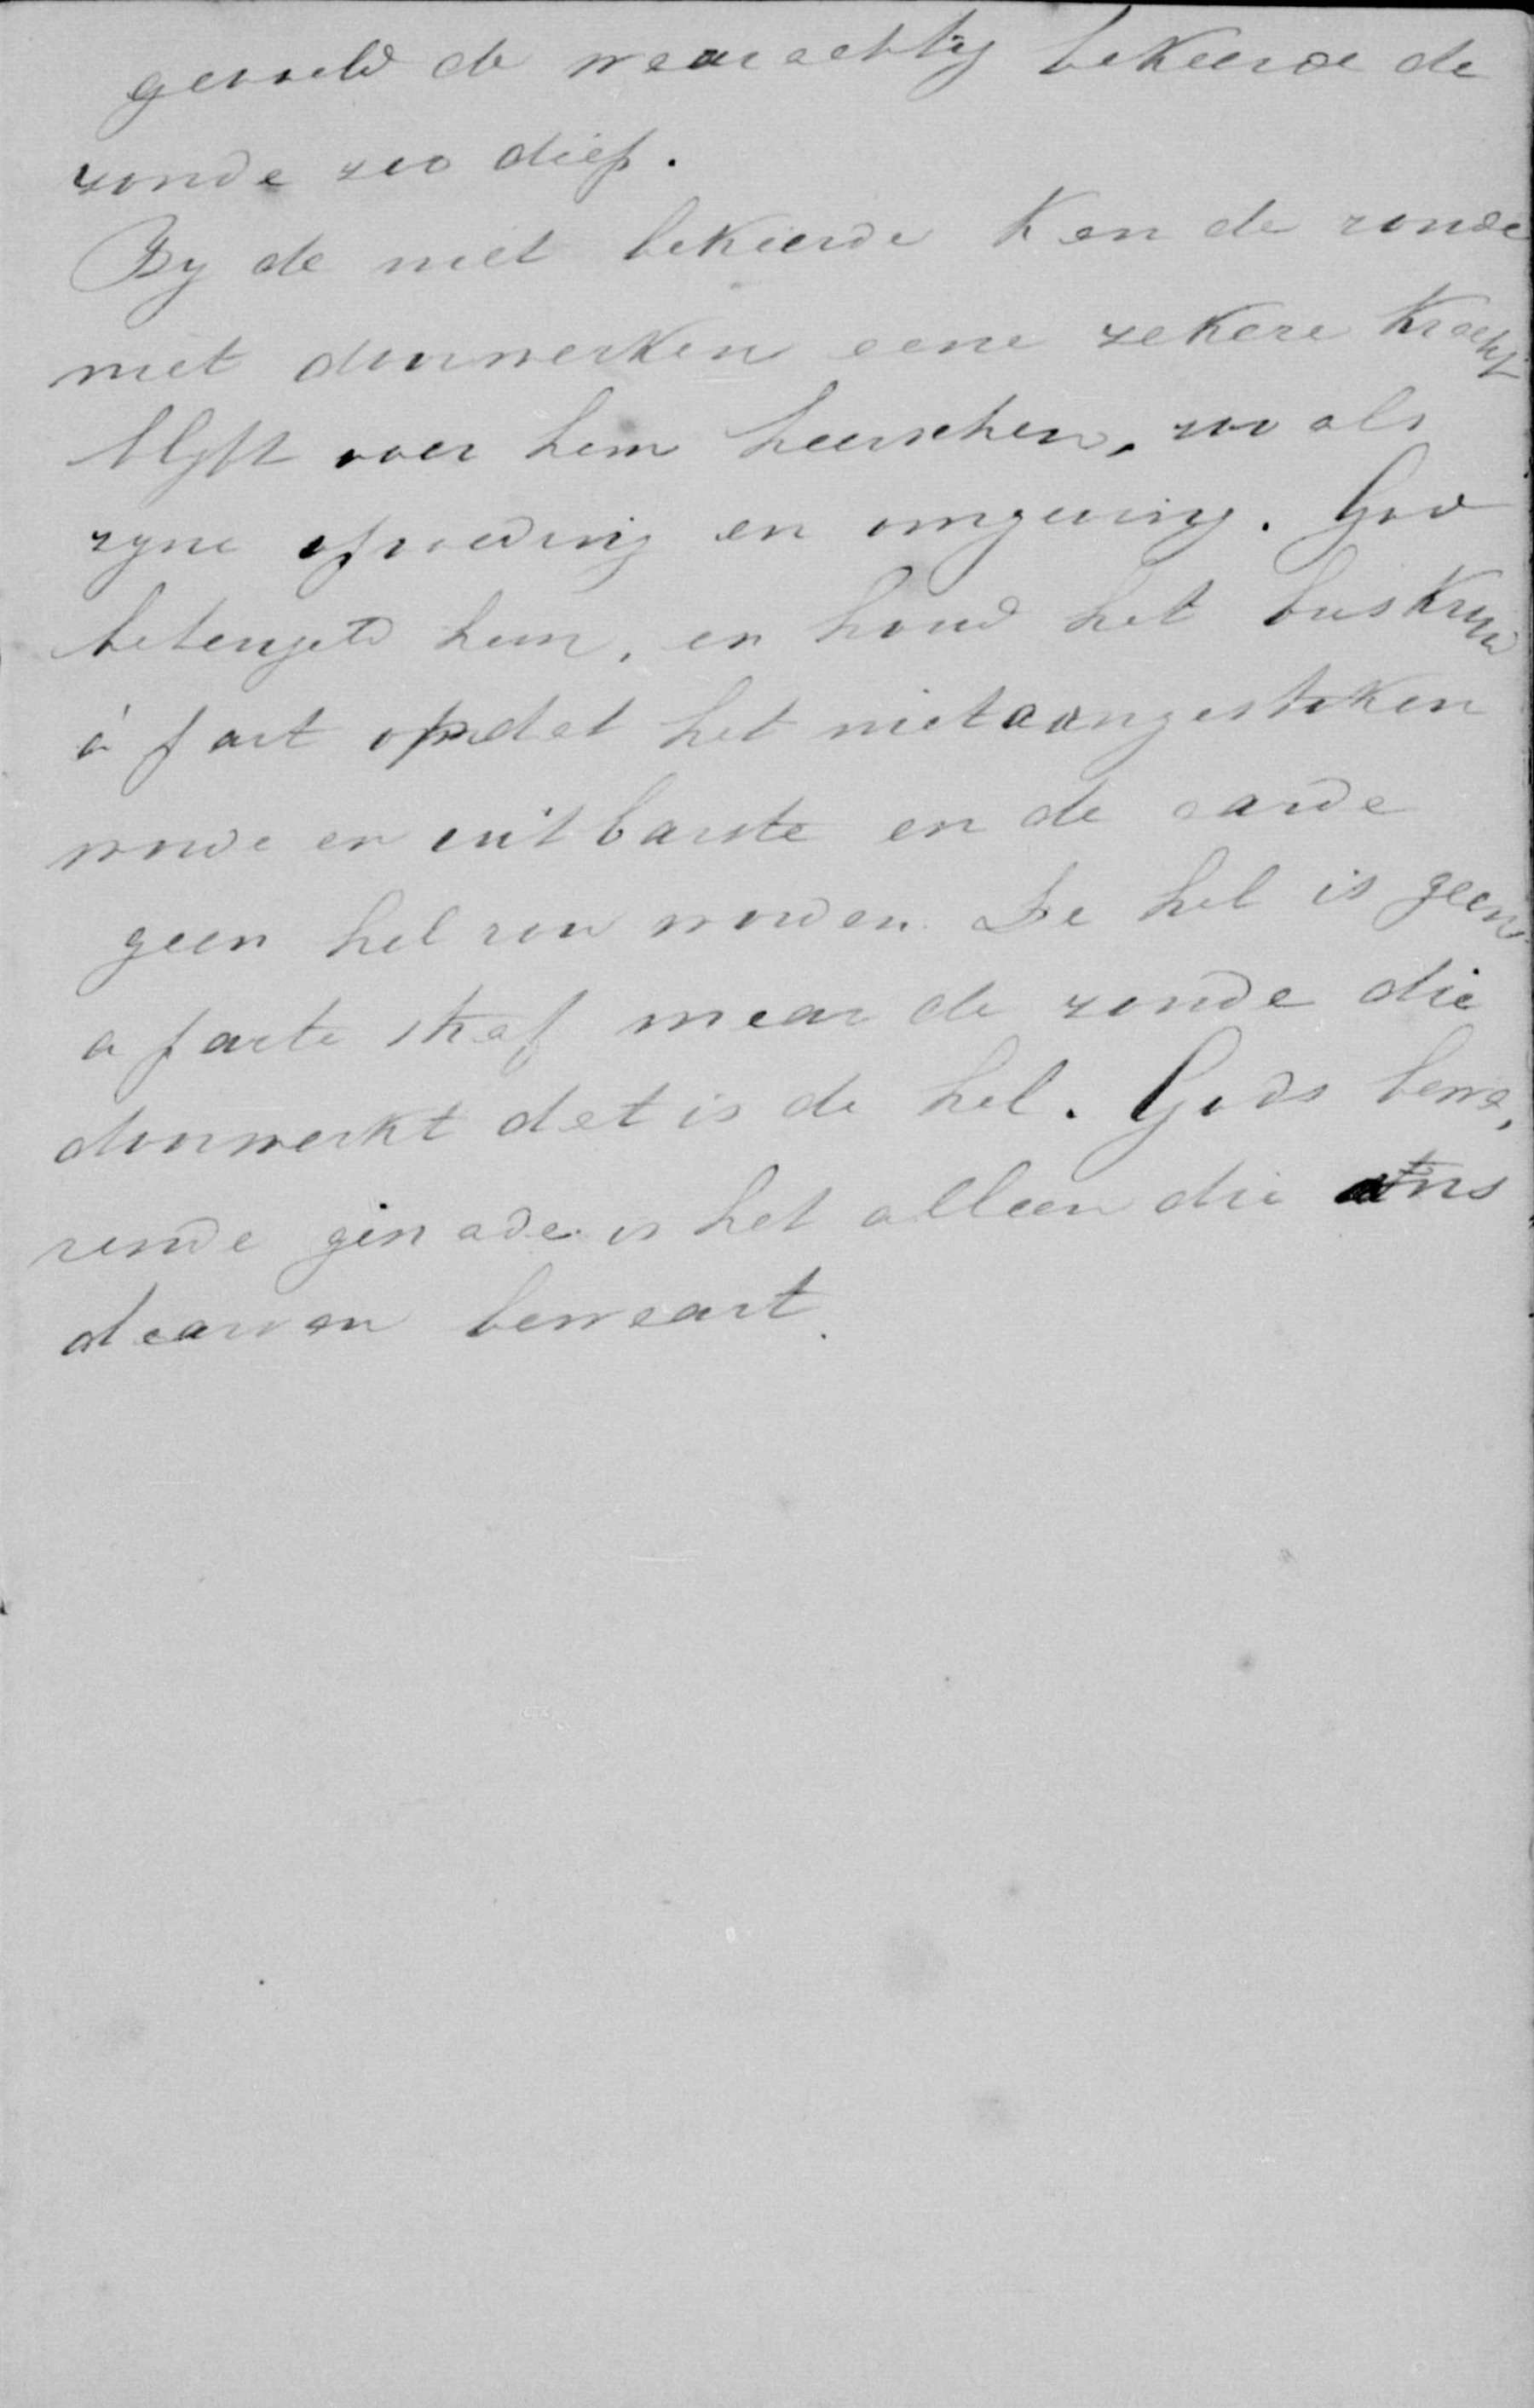 gevoeld de waarachtig bekeerde de
zonde zoo diep.
By de niet bekeerde kan de zonde
niet doorwerken eene zekere kracht
blyft over hem heerschen, zoo als
zyne opvoeding en omgeving. God
beteugeld hem, en houd het buskruid
à part opdat het niet aangestoken
worde en uitbarste en de aarde
geen hel zou worden. De hel is geen
aparte straf maar de zonde die
doorwerkt dat is de hel. Gods bewa,
rende genade is het alleen die ons
daarvan bewaart.